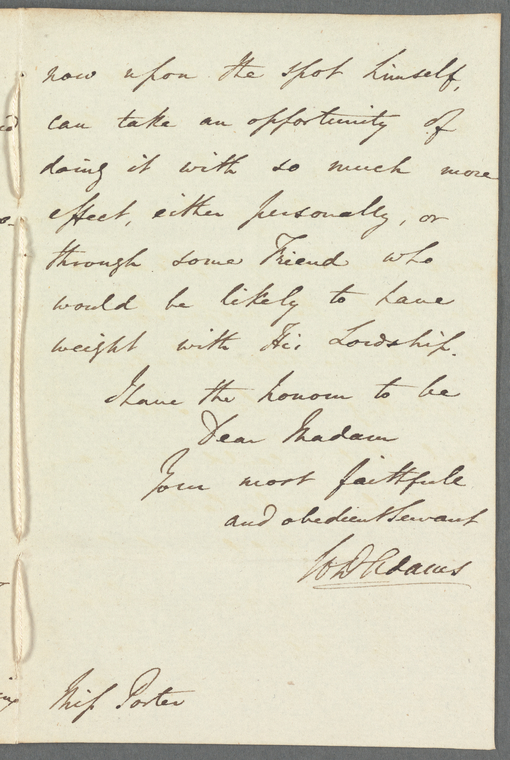 now upon the spot himself,
can take an opportunity of
doing it with so much more
effect, either personally, or
through some Friend who
would be likely to have
weight with His Lordship.
I have the honour to be
Dear Madam
Your most faithfull
and obedient Servant
W D Adams
Miſs Porter